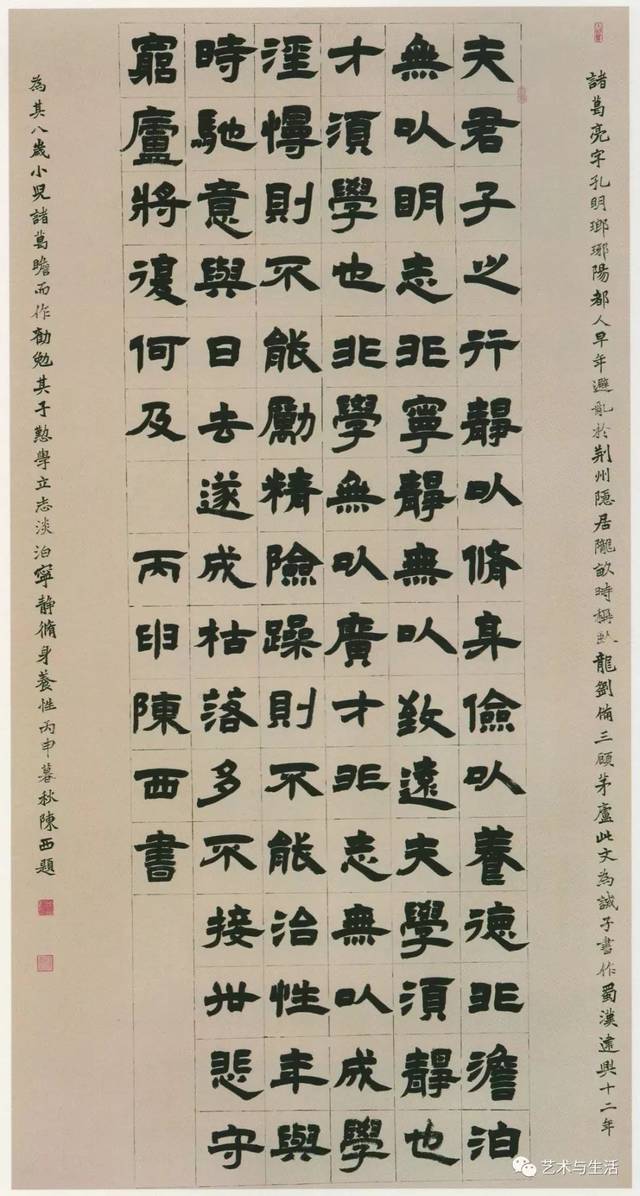 諸葛亮字孔明瑯琊陽都人早年避亂於荆州隱居隴畝時稱卧龍劉備三顧茅廬此文為誡子書作蜀漢建興十二年
夫君子之行靜以脩身儉以養德非澹泊
無以明志非寧靜無以致遠夫學須靜也
才須學也非學無以廣才非志無以成學
淫慢則不能勵精險躁則不能治性年與
時馳意與日去遂成枯落多不接世悲守
窮廬將復何及 丙申陳西書
為其八歲小兒諸葛瞻而作勸勉其子懃學立志淡泊寧靜脩身養性丙申暮秋陳西題
艺术与生活